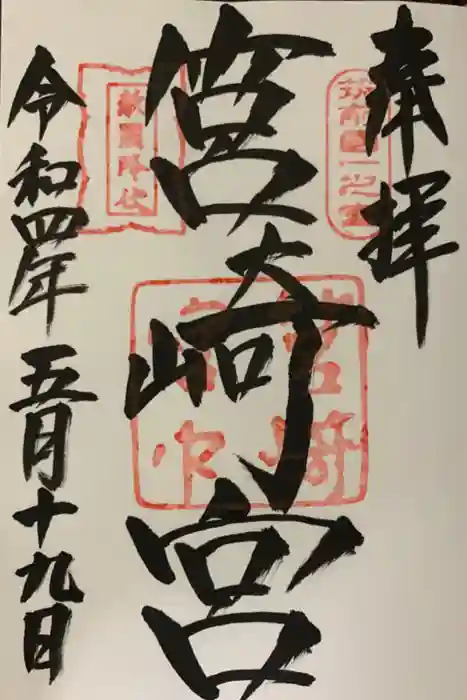 奉拝
筑前國一之宮
筥崎宮
筥崎宮印
敵國降伏
令和四年五月十九日